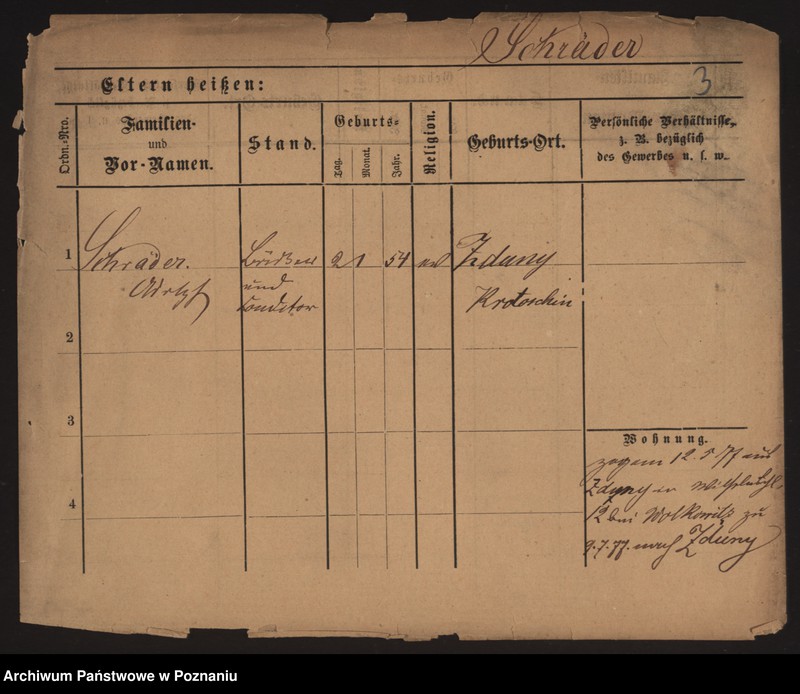 Schräder
3
Eltern heißen:
Ordn.-Nro.
Familien-
und
Vor-Namen.
Stand.
Geburts-
Tag.
Monat.
Jahr.
Religion.
Geburts-Ort.
Persönliche Verhältnisse,
z. B. bezüglich
des Gewerbes u. s. w.
1
Schräder.
2 1 54 ev Zduny
Adolph
und
Conditor
Krotoschin
2
3
4
Wohnung.
zog am 12.5.77 aus
Zduny
12 bei Wolkowitz zu
9.7.77. nach Zduny
Archiwum Państwowe w Poznaniu